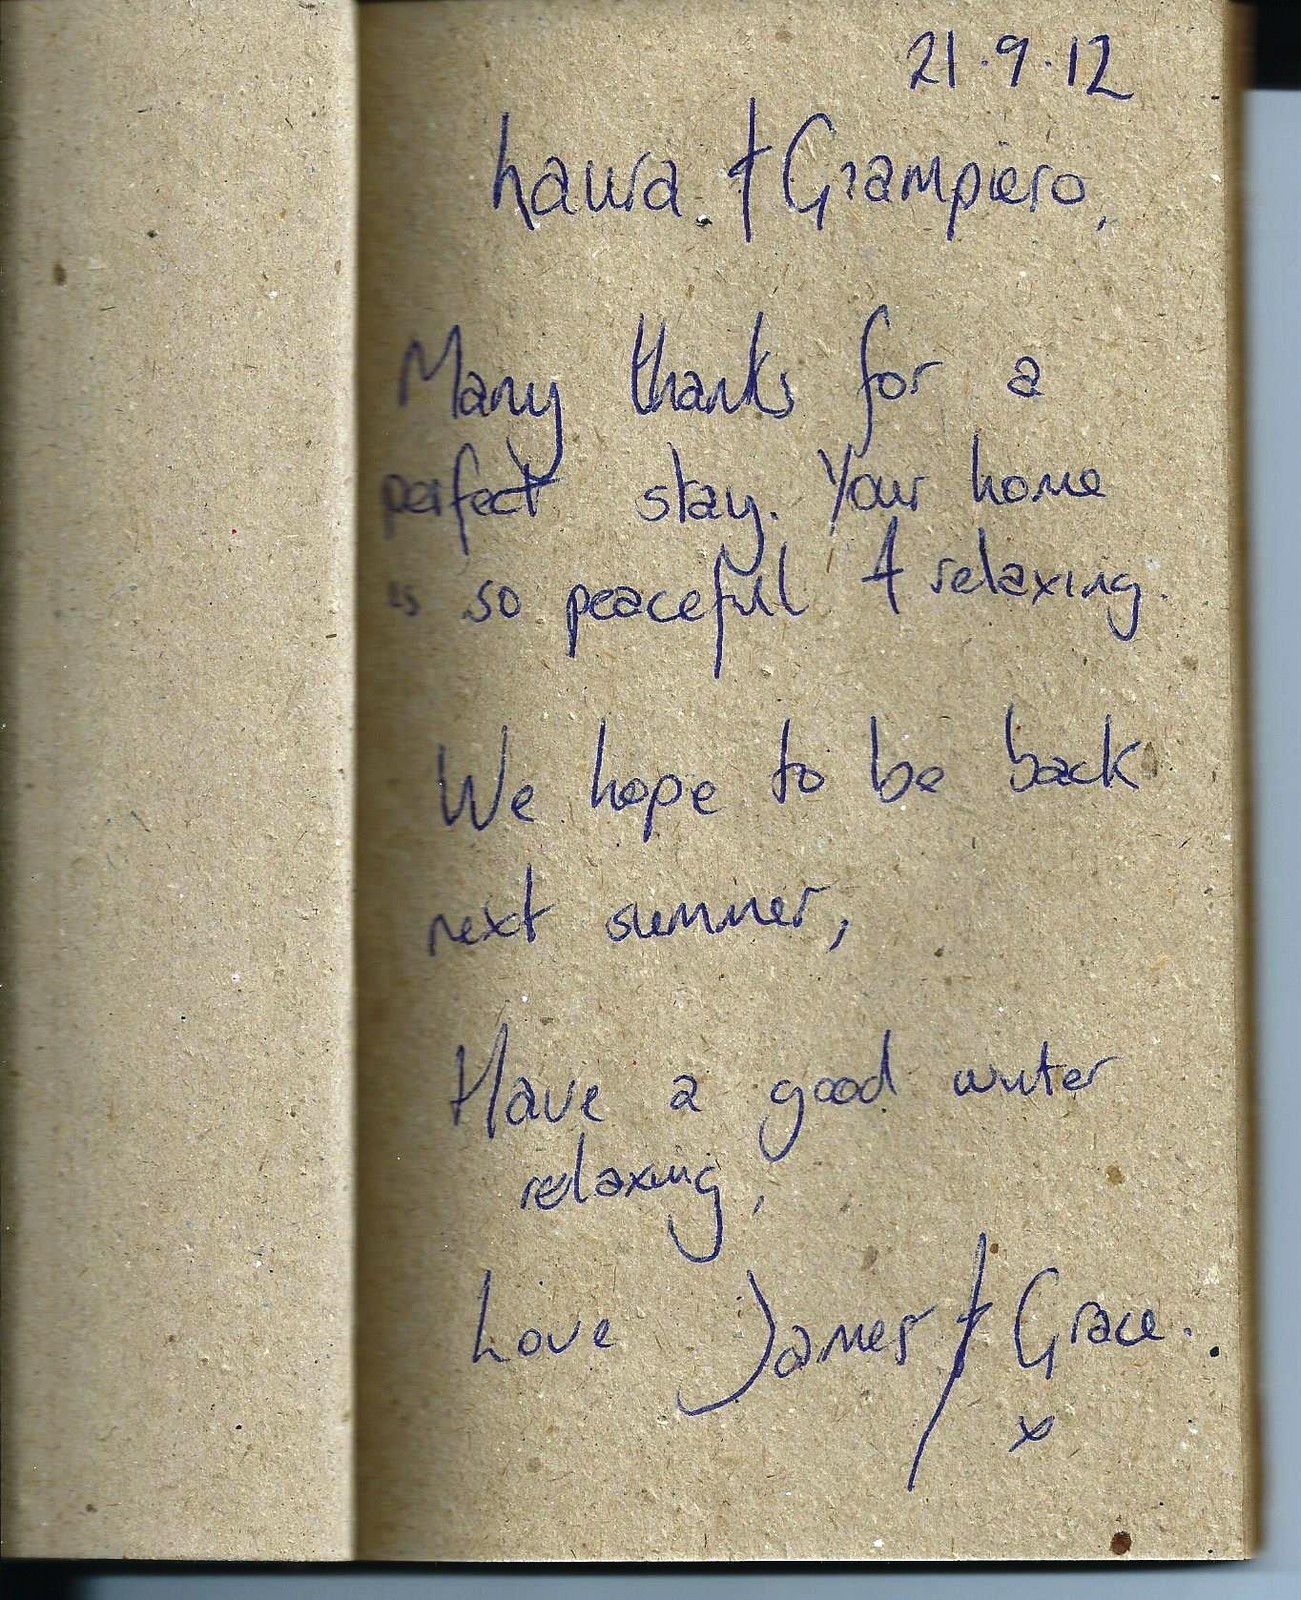 21.9.12
Laura & Giampiero,
Many thanks for a
perfect stay. Your home
is so peaceful & relaxing.
We hope to be back
next summer,
Have a good winter
relaxing,
Love James & Grace.
x